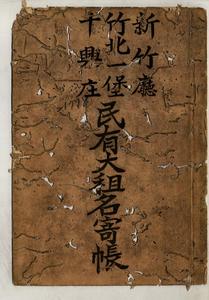 新竹廳
竹北一堡
千興庄
民有大租名寄帳